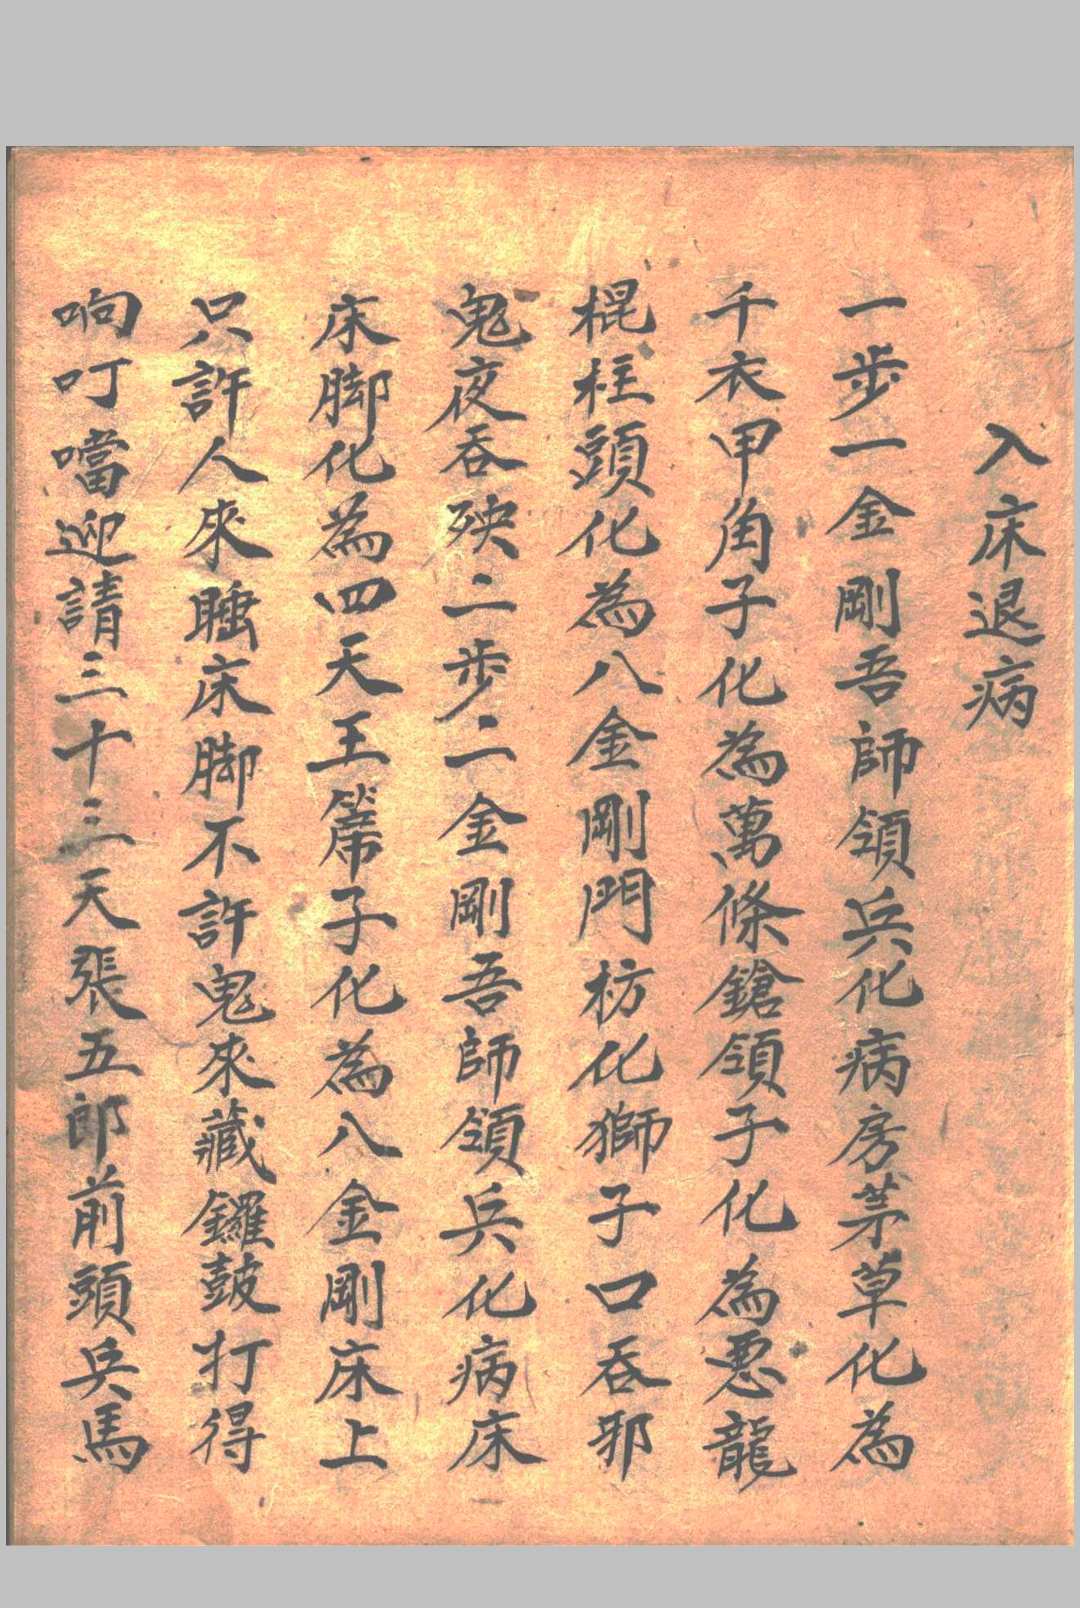 入床退病
一步一金剛吾師領兵化病房茅草化為
千衣甲角子化為萬條鎗領子化為悪龍
棍柱頭化為八金剛門枋化獅子口吞邪
鬼夜吞殃二步二金剛吾師領兵化病床
床脚化為四天王簾子化為八金剛床上
只許人來睡床脚不許鬼來藏鑼鼓打得
响叮噹迎請三十三天張五郎前頭兵馬